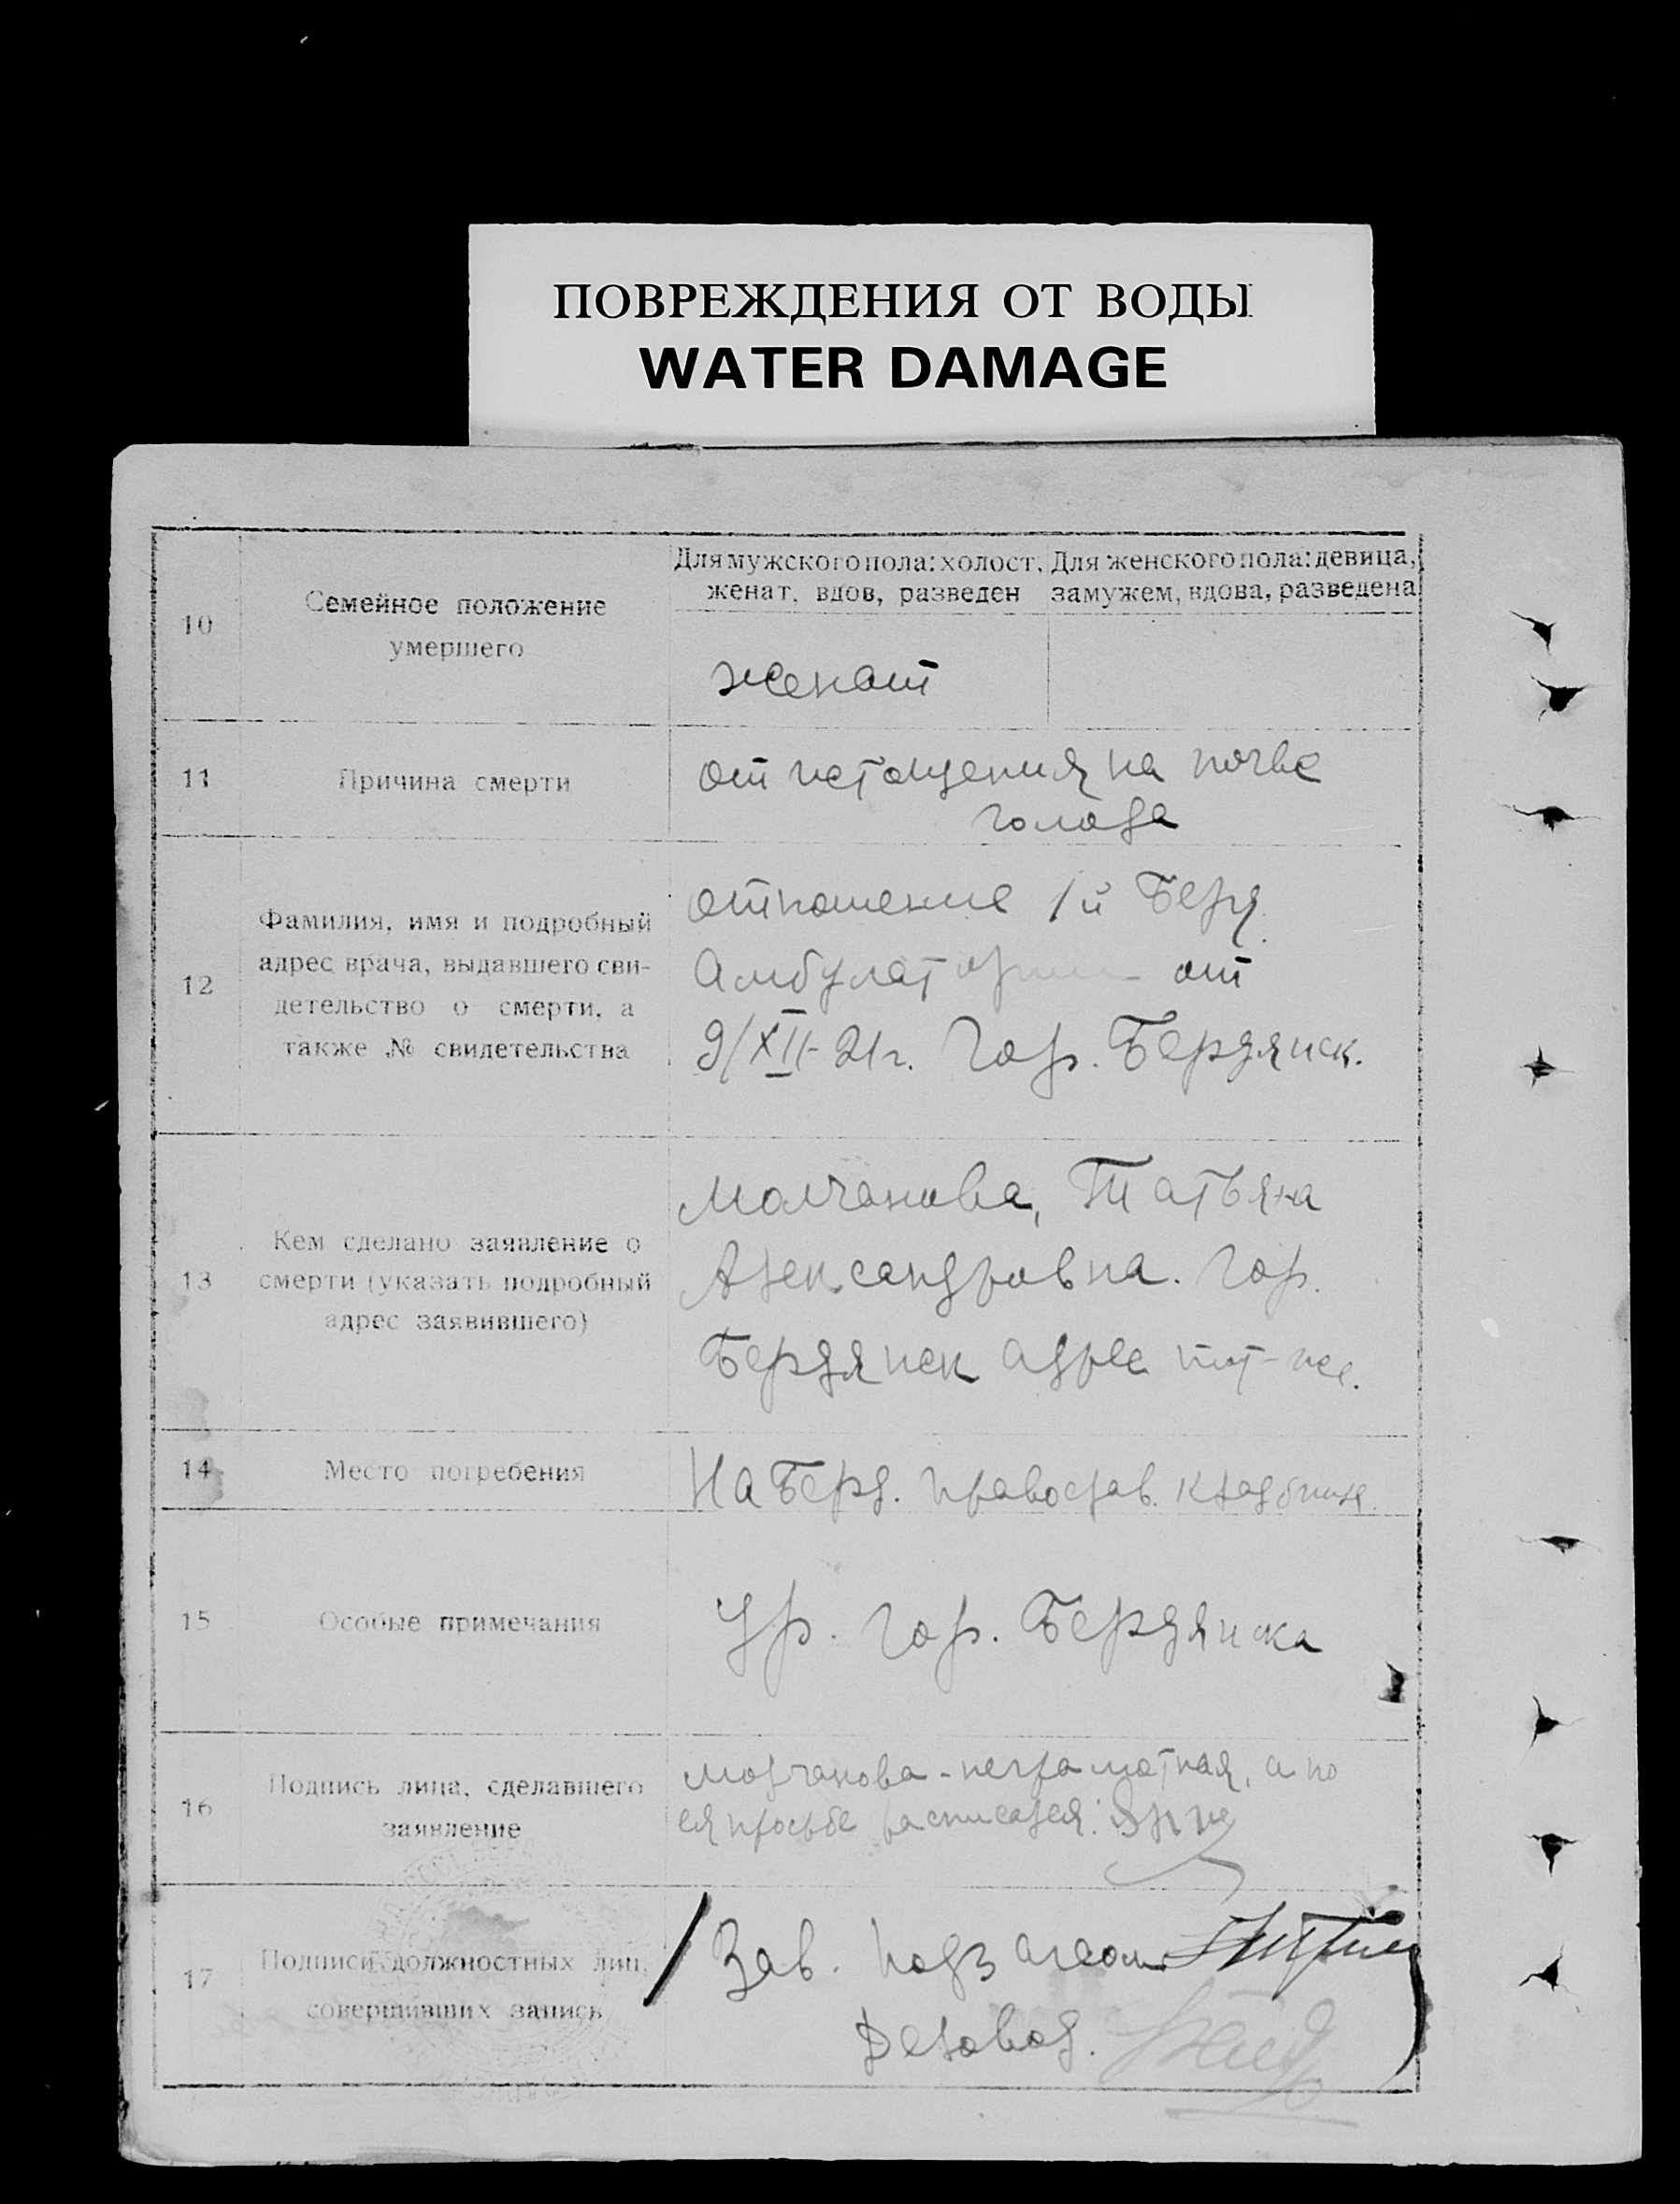 ПОВРЕЖДЕНИЯ ОТ ВОДЫ
WATER DAMAGE
10
Семейное положение
умершего
Для мужского пола: холост,
женат, вдов, разведен
Для женского пола: девица,
замужем, вдова, разведена
женат
11
Причина смерти
от истощения на почве
голода
12
Фамилия, имя и подробный
адрес врача, выдавшего сви-
детельство о смерти, а
также № свидетельства
отношение 1й Берд.
Амбулатории от
9/XII-21 г. Гор. Бердянск.
13
Кем сделано заявление о
смерти (указать подробный
адрес заявившего)
Молчанова, Татьяна
Александровна. Гор.
Бердянск адрес тот-же.
14
Место погребения
На Берд. православ. кладбище
15
Особые примечания
Ур. гор. Бердянска
16
Подпись лица, сделавшего
заявление
Молчанова - неграмотная, а по
ея просьбе расписался:
17
Подписи должностных лиц,
совершивших запись
Зав. Подзагсом
Деловод.